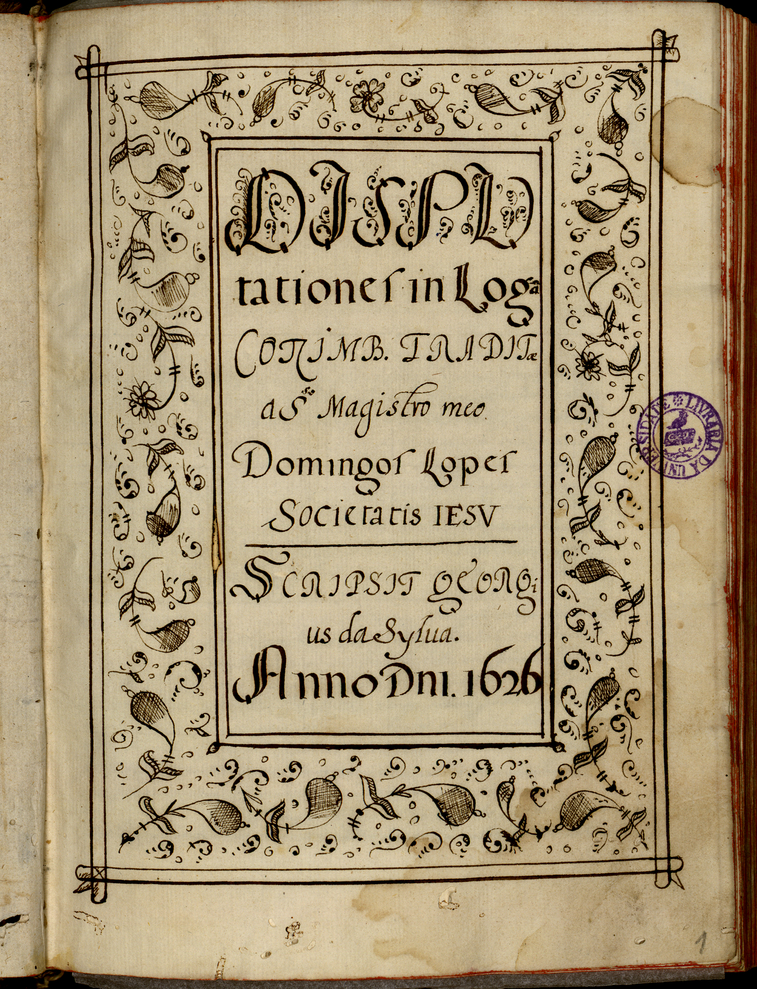 DISPU
tationes in Logᵃ
CONIMB. TRADITæ
a Sʳᵉ Magistro meo
Domingos Lopes
Societatis IESV
SCRIPSIT GEORGi
us da Sylua.
Anno Dni. 1626
LIVRARIA DA UNIVERSIDADE
1